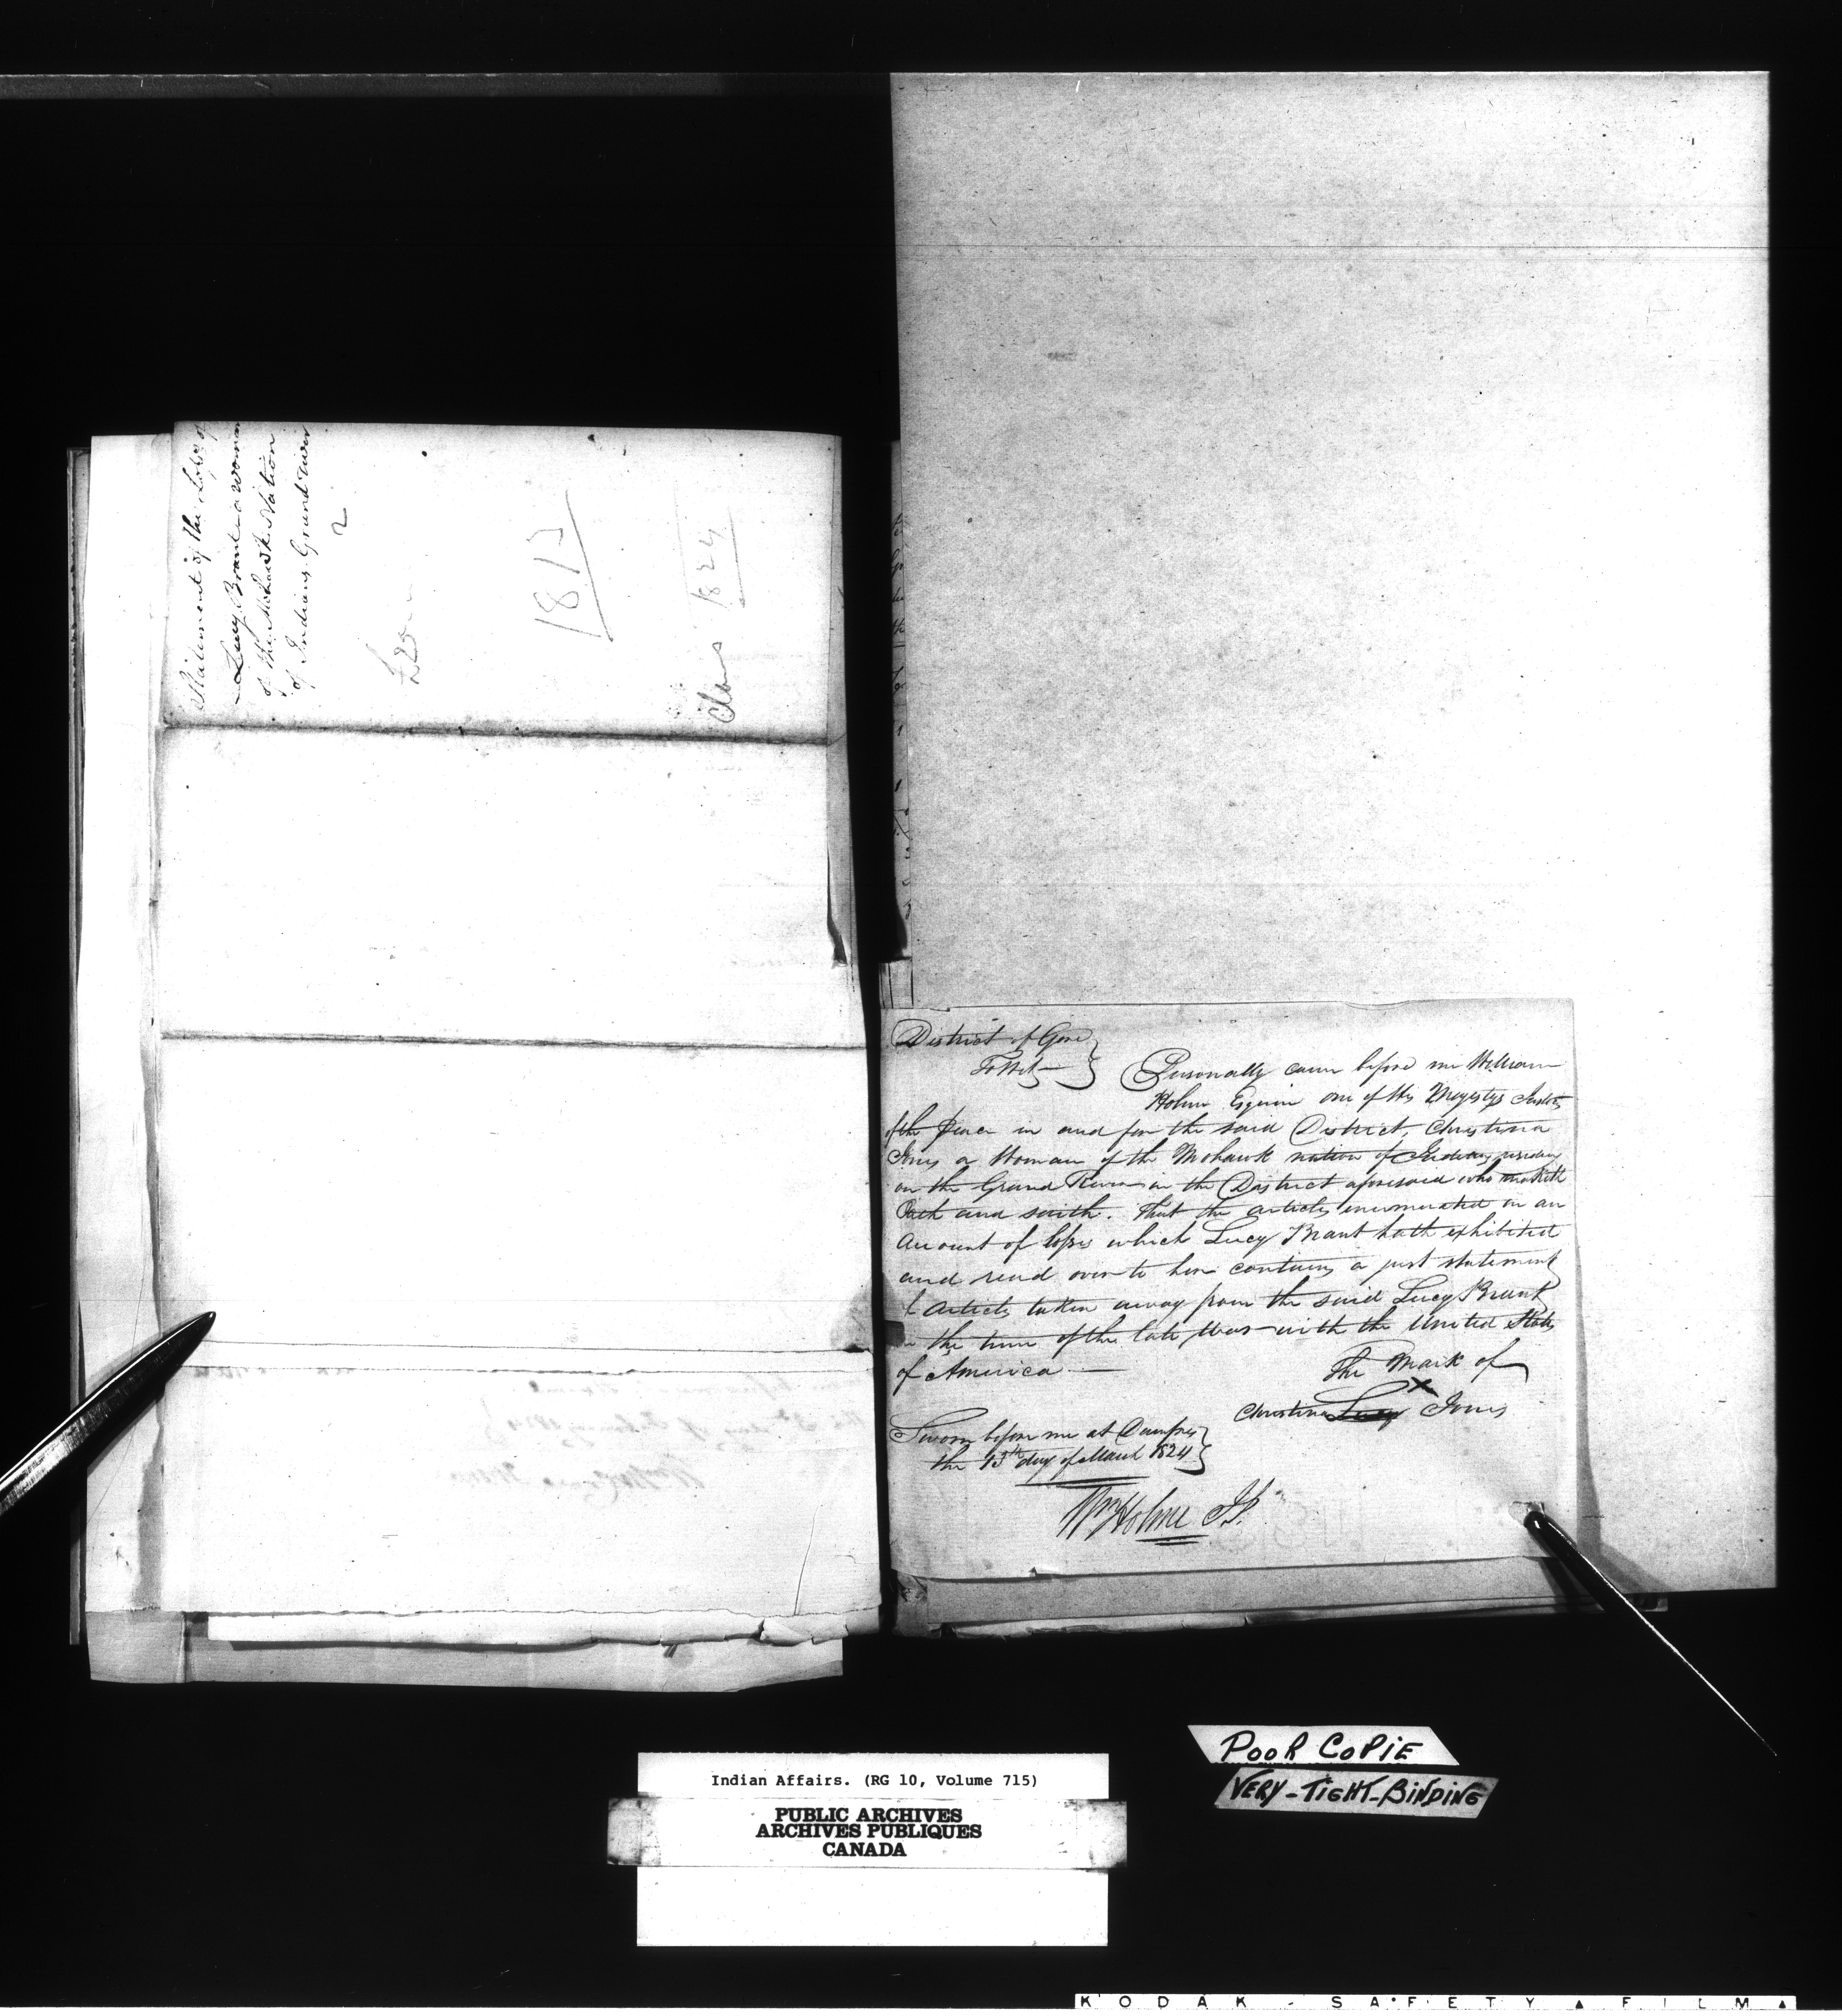 Statement of the Losses of
Lucy Brant a woman
of the Mohawk Nation
of Indians Grand River
2
£20
1812
Claus 1824
District of Gore
To Wit
Personally came before me William
Holme Esquire one of His Majestys Justices
of the Peace in and for the said District, Christina
Jones a Woman of the Mohawk nation of Indians residing
on the Grand River in the District aforesaid who maketh
Oath and saith. That the articles enumerated in an
Account of losses which Lucy Brant hath exhibited
and read over to her contains a just statement
of Articles taken away from the said Lucy Brant
in the time of the late War with the United States
of America
The Mark of
X
Christina Lucy Jones
Sworn before me at Dumfries
the 13th day of March 1824
Wm Holme J.P.
POOR COPIE
VERY-TIGHT-BINDING
Indian Affairs. (RG 10, Volume 715)
PUBLIC ARCHIVES
ARCHIVES PUBLIQUES
CANADA
KODAK - SAFETY ▲ FILM ▲